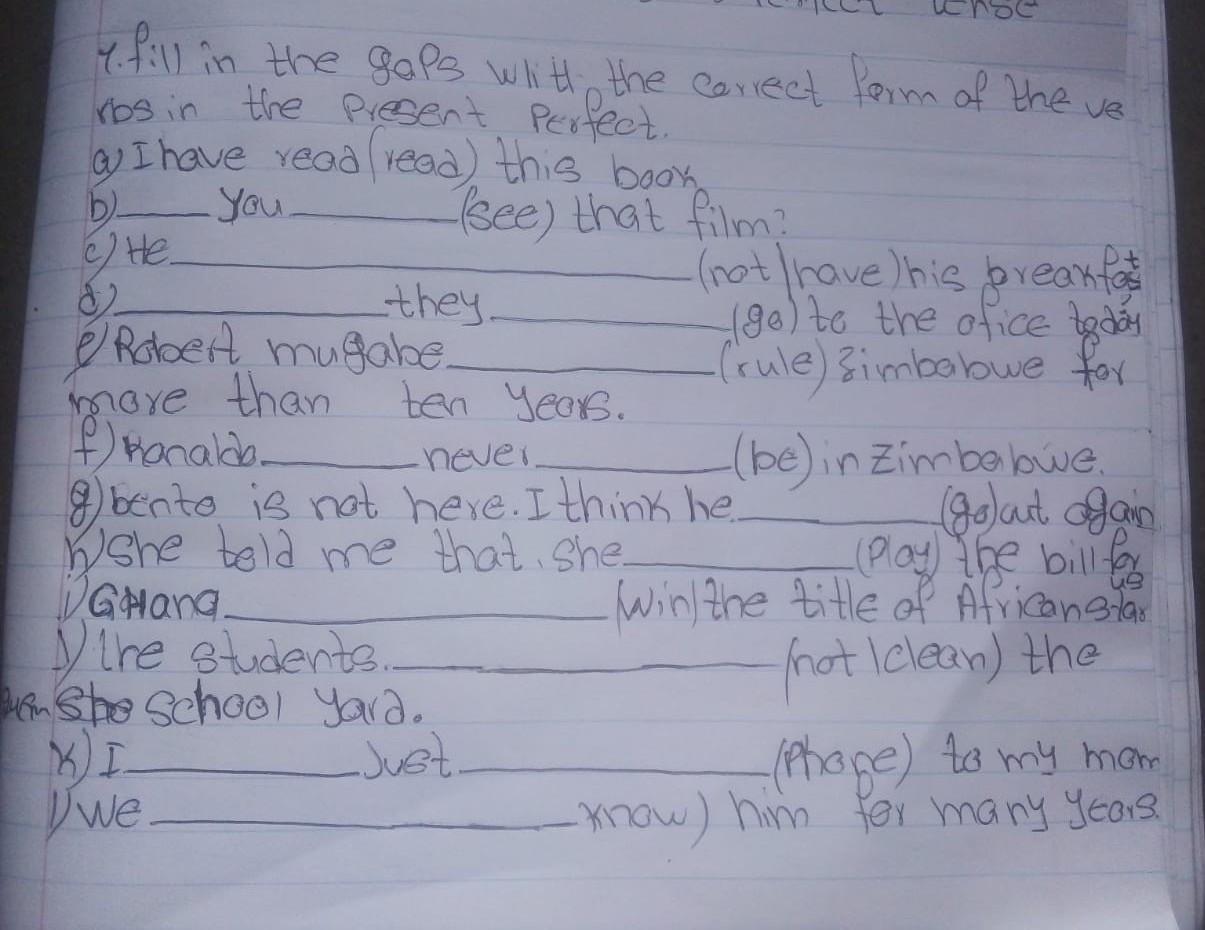 tense
1. fill in the gaps whitt the correct form of the ve
rbs in the Present Perfect.
a) I have read (read) this book
b)____ you ________ (see) that film?
c) He ______________ (not/have) his breakfast
d)__________ they __________ (go) to the ofice today
e) Robert mugabe __________ (rule) Zimbabwe for
more than ten years.
f) Ronaldo ______ never ________ (be) in Zimbabwe.
g) bento is not here. I think he ________ (go) out again
h) she told me that she ________ (Play) the bill for
us
i) GHana ______________ (win) the title of African star
j) the students ______________ (not/clean) the
school yard.
k) I ________ Just __________ (Phone) to my mom
l) We ______________ know) him for many years.